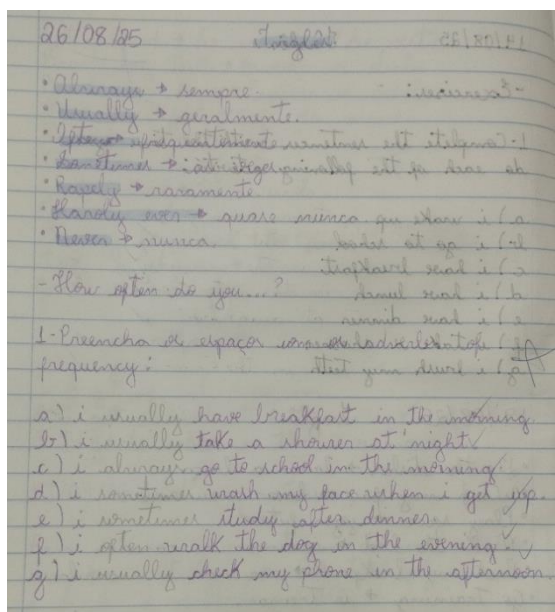 26/08/25 Inglês
• Always → sempre.
• Usually → geralmente.
• Often → frequentemente
• Sometimes →
• Rarely → raramente
• Hardly ever → quase nunca
• Never → nunca.
- How often do you...?
1- Preencha os espaços com os adverbs of
frequency:
a) i usually have breakfast in the morning.
b) i usually take a shower at night.
c) i always go to school in the morning.
d) i sometimes wash my face when i get up.
e) i sometimes study after dinner
f) i often walk the dog in the evening.
g) i usually check my phone in the afternoon